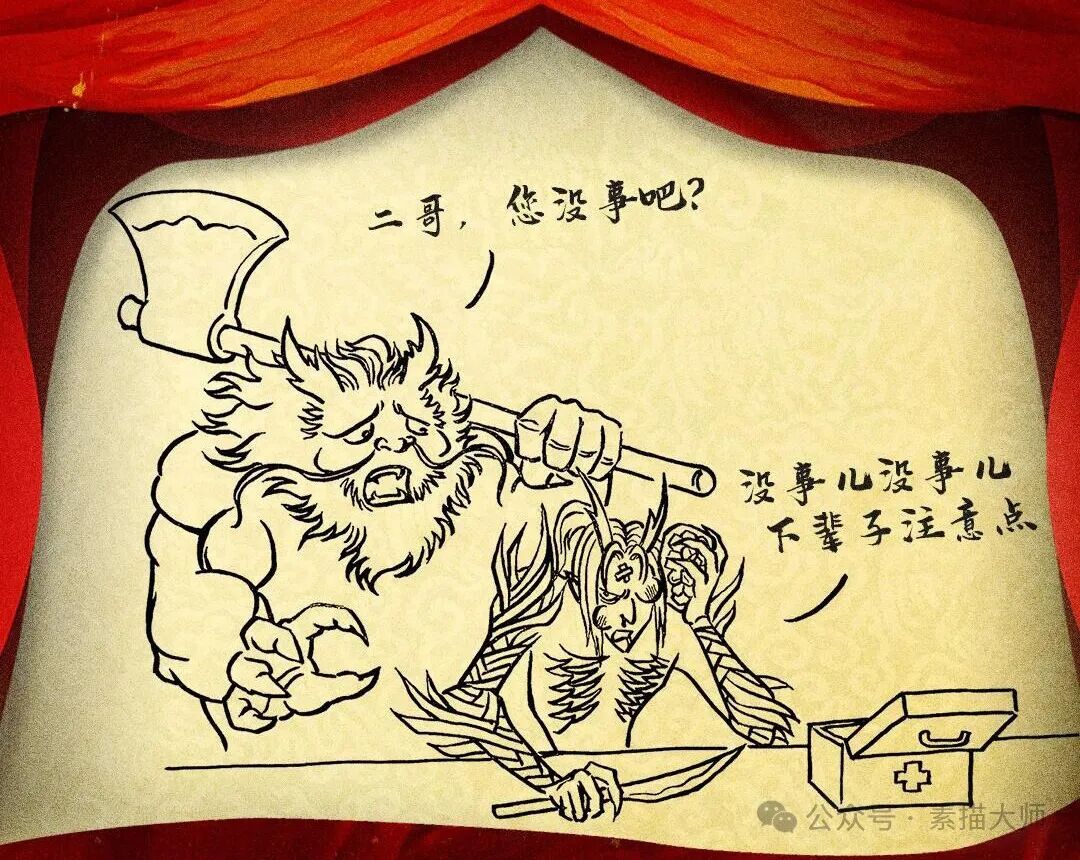 二哥，您没事吧？
没事儿没事儿
下辈子注意点
公众号·素描大师